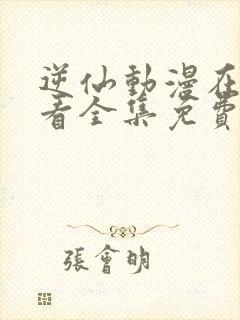 逆仙動漫在
看全集免費
張會明